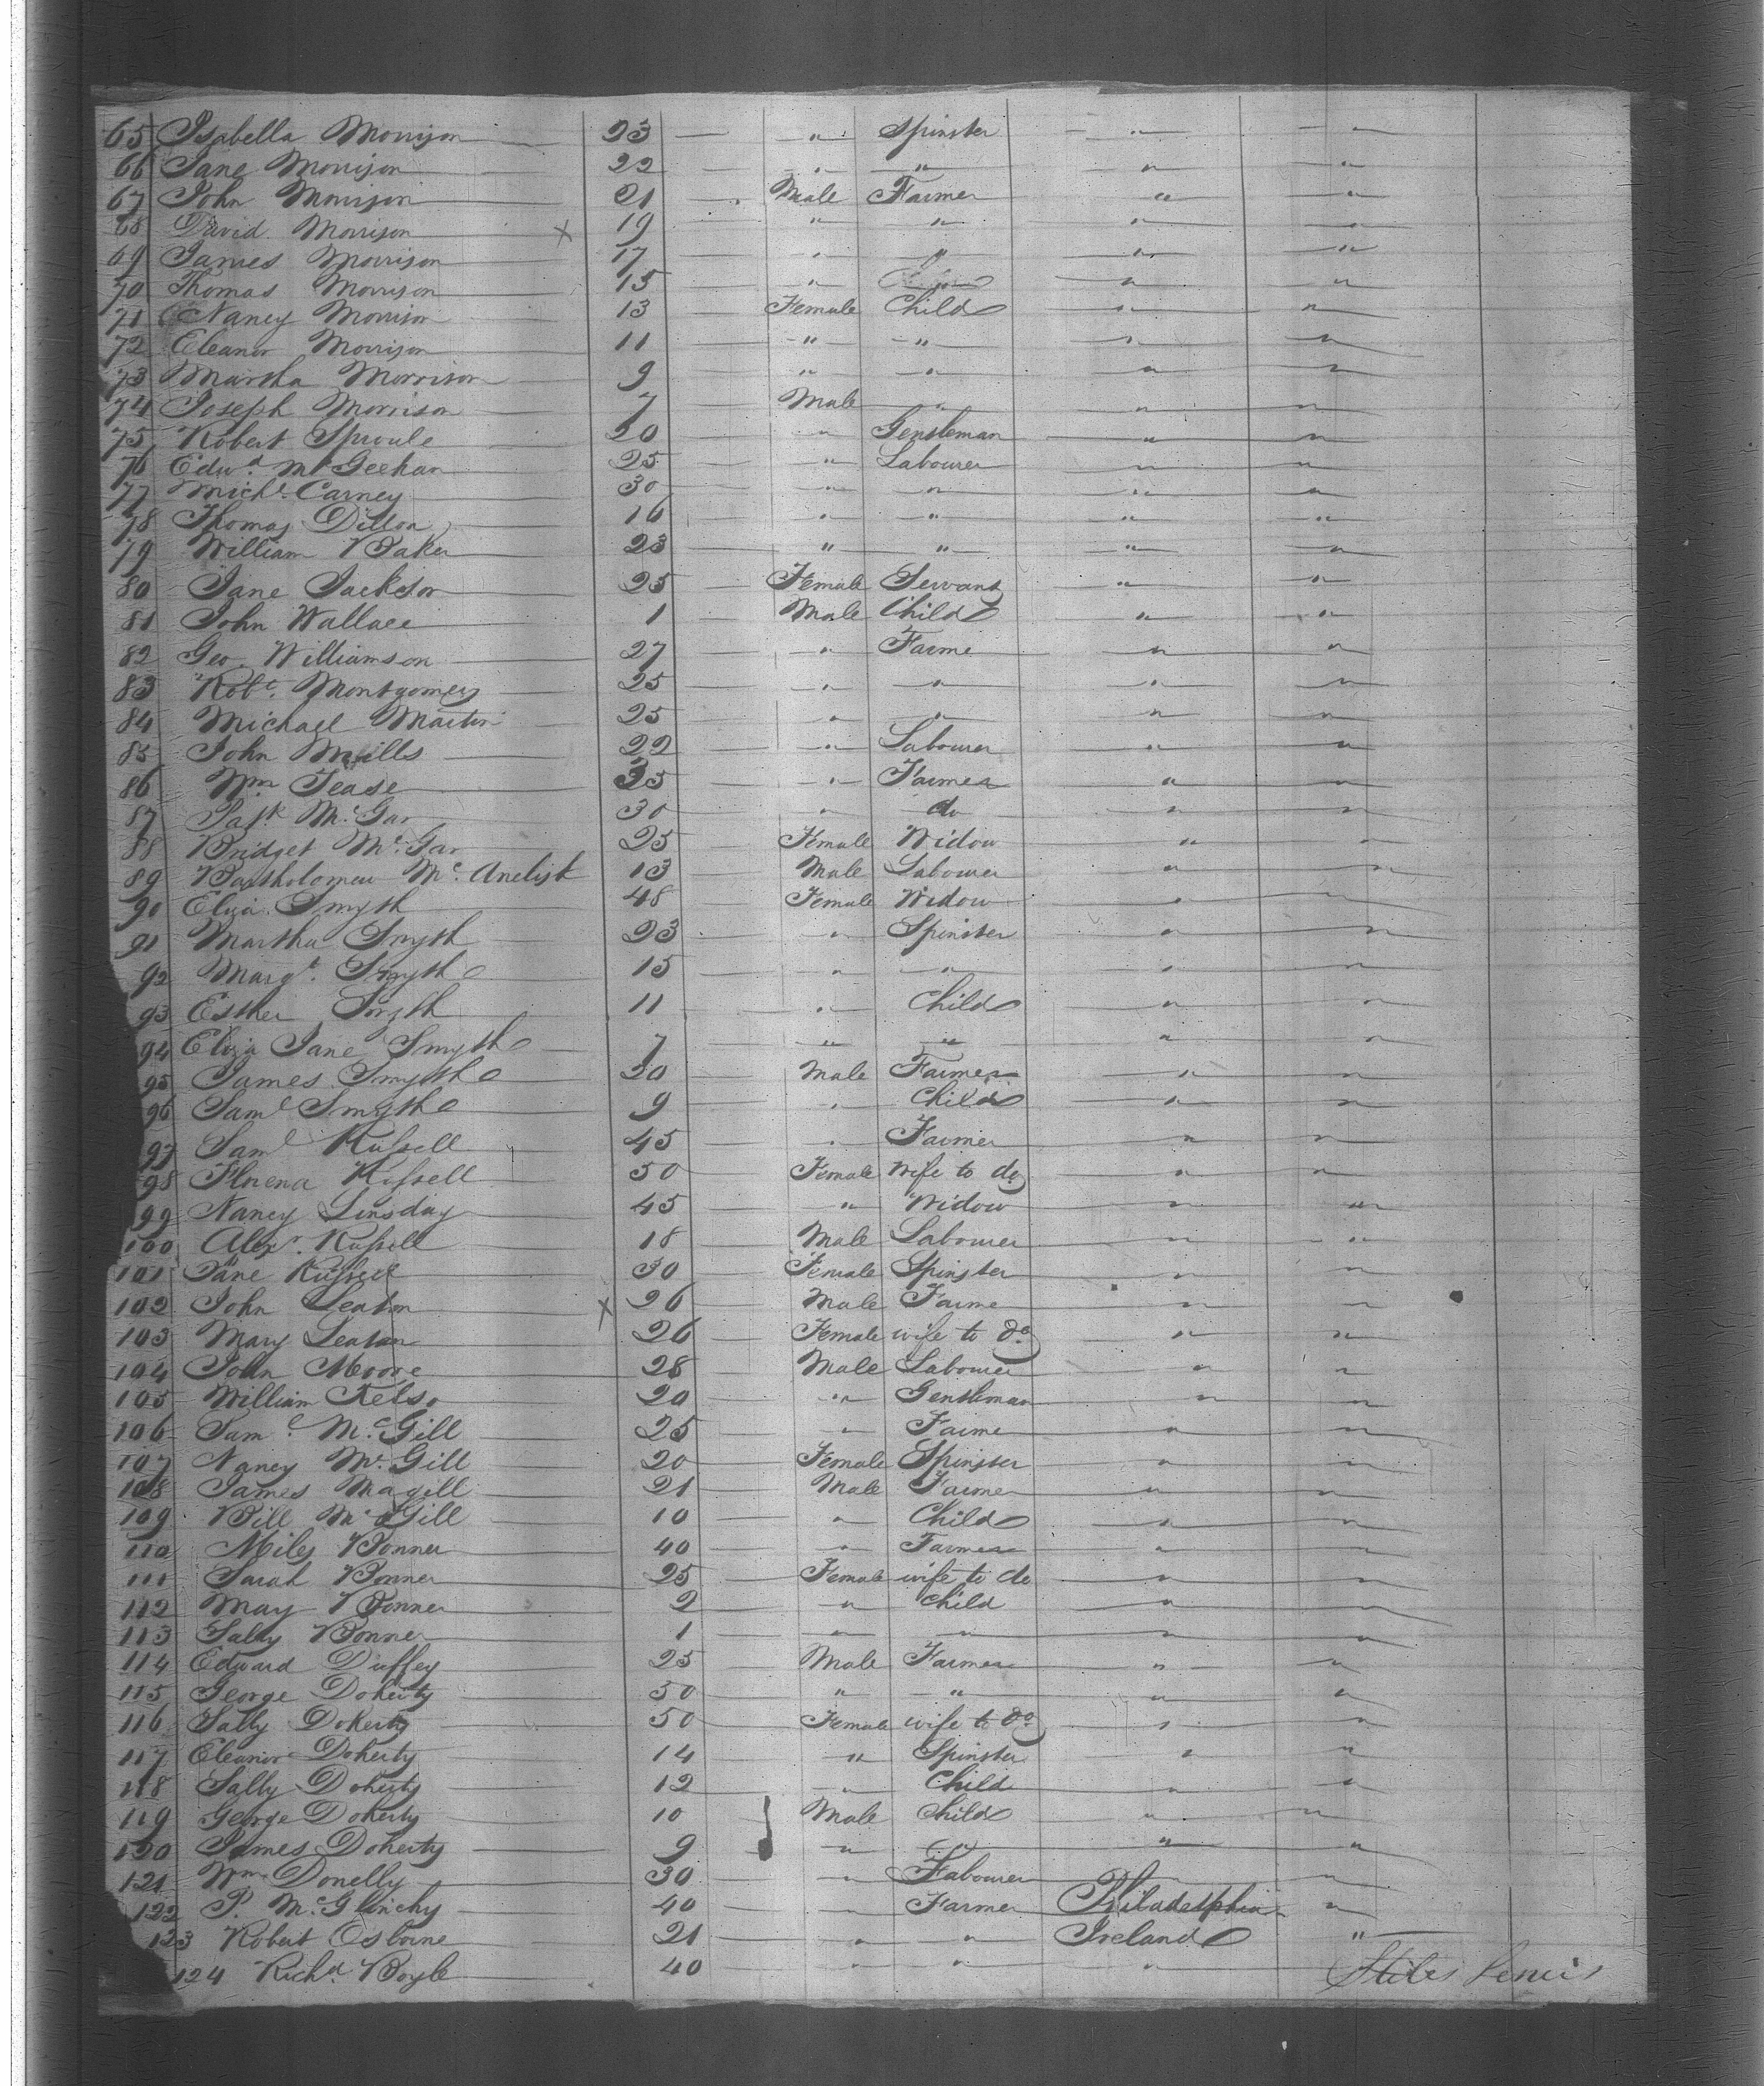 65 Isabella Morrison 23 " Spinster " "
66 Jane Morrison 22 " " " "
67 John Morrison 21 Male Farmer " "
68 David Morrison x 19 " " " "
69 James Morrison 17 " " " "
70 Thomas Morrison 15 " " "
71 Nancy Morrison 13 Female Child " "
72 Eleanor Morrison 11 " " " "
73 Martha Morrison 9 " " " "
74 Joseph Morrison 7 Male " " "
75 Robert Sproule 20 " Gentleman " "
76 Edwd. McGeehan 25 " Labourer " "
77 Michl. Carney 30 " " " "
78 Thomas Dillon 16 " " " "
79 William Baker 23 " " " "
80 Jane Jackson 25 Female Servant " "
81 John Wallace 1 Male Child " "
82 Geo. Williamson 27 " Farme " "
83 Robt. Montgomery 25 " " " "
84 Michael Martin 25 " " " "
85 John Mills 22 " Labourer " "
86 Wm Tease 35 " Farmer " "
87 Patk McGar 30 " do " "
88 Bridget McGar 25 Female Widow " "
89 Bartholomew Mc. Anelisk 13 Male Labourer " "
90 Eliza Smyth 48 Female Widow " "
91 Martha Smyth 23 " Spinster " "
92 Margt. Smyth 15 " " " "
93 Esther Smyth 11 " Child " "
94 Eliza Jane Smyth 7 " " " "
95 James Smyth 20 Male Farmer " "
96 Saml Smyth 9 " Child " "
97 Saml Russell 45 " Farmer " "
98 Florena Russell 50 Female Wife to do " "
99 Nancy Linsday 45 " Widow " "
100 Alexr. Russell 18 Male Labourer " "
101 Jane Russell 30 Female Spinster " "
102 John Leaton x 26 Male Farme " "
103 Mary Leaton 26 Female wife to do. " "
104 John Moore 28 Male Labourer " "
105 William Kelso 20 " Gentleman " "
106 Saml McGill 25 " Farme " "
107 Nancy McGill 20 Female Spinster " "
108 James Magill 21 Male Farmer " "
109 Bill McGill 10 " Child " "
110 Miles Bonner 40 " Farmer " "
111 Sarah Bonner 25 Female wife to do " "
112 May Bonner 2 " Child " "
113 Sally Bonner 1 " " " "
114 Edward Duffey 25 Male Farmer " "
115 George Doherty 50 " " " "
116 Sally Doherty 50 Female wife to do. " "
117 Eleanor Doherty 14 " Spinster " "
118 Sally Doherty 12 " Child " "
119 George Doherty 10 Male Child " "
120 James Doherty 9 " " " "
121 Wm Donelly 30 " Labourer " "
122 P. McGlinchy 40 " Farmer Philadelphia "
123 Robert Osborne 21 " " Ireland "
124 Richd. Boyle 40 " " "
Stiles Lewis